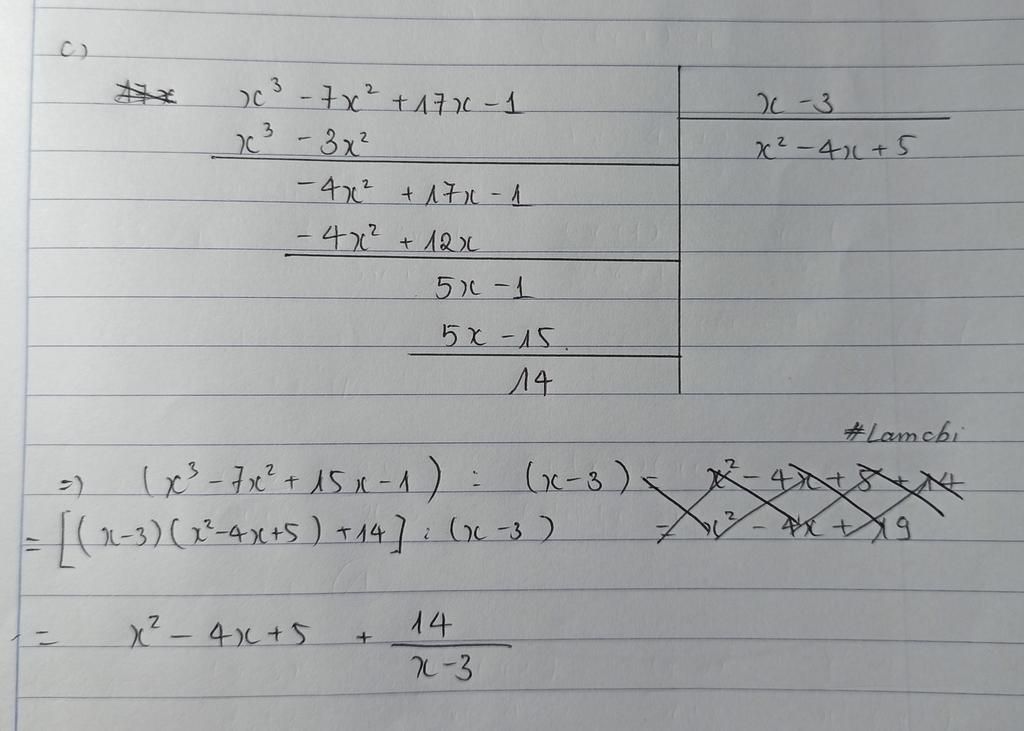 c)
17x x³ - 7x² + 17x - 1 x - 3
x³ - 3x² x² - 4x + 5
- 4x² + 17x - 1
- 4x² + 12x
5x - 1
5x - 15
14
#Lamchi
=> (x³ - 7x² + 15x - 1) : (x - 3) = x² - 4x + 5 + 14
= [(x - 3)(x² - 4x + 5) + 14] : (x - 3) = x² - 4x + 19
= x² - 4x + 5 + 14/(x - 3)